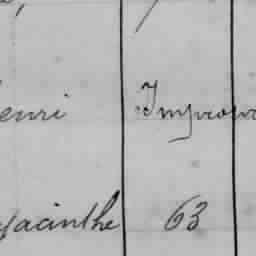 enri Impropr
yacinthe 63